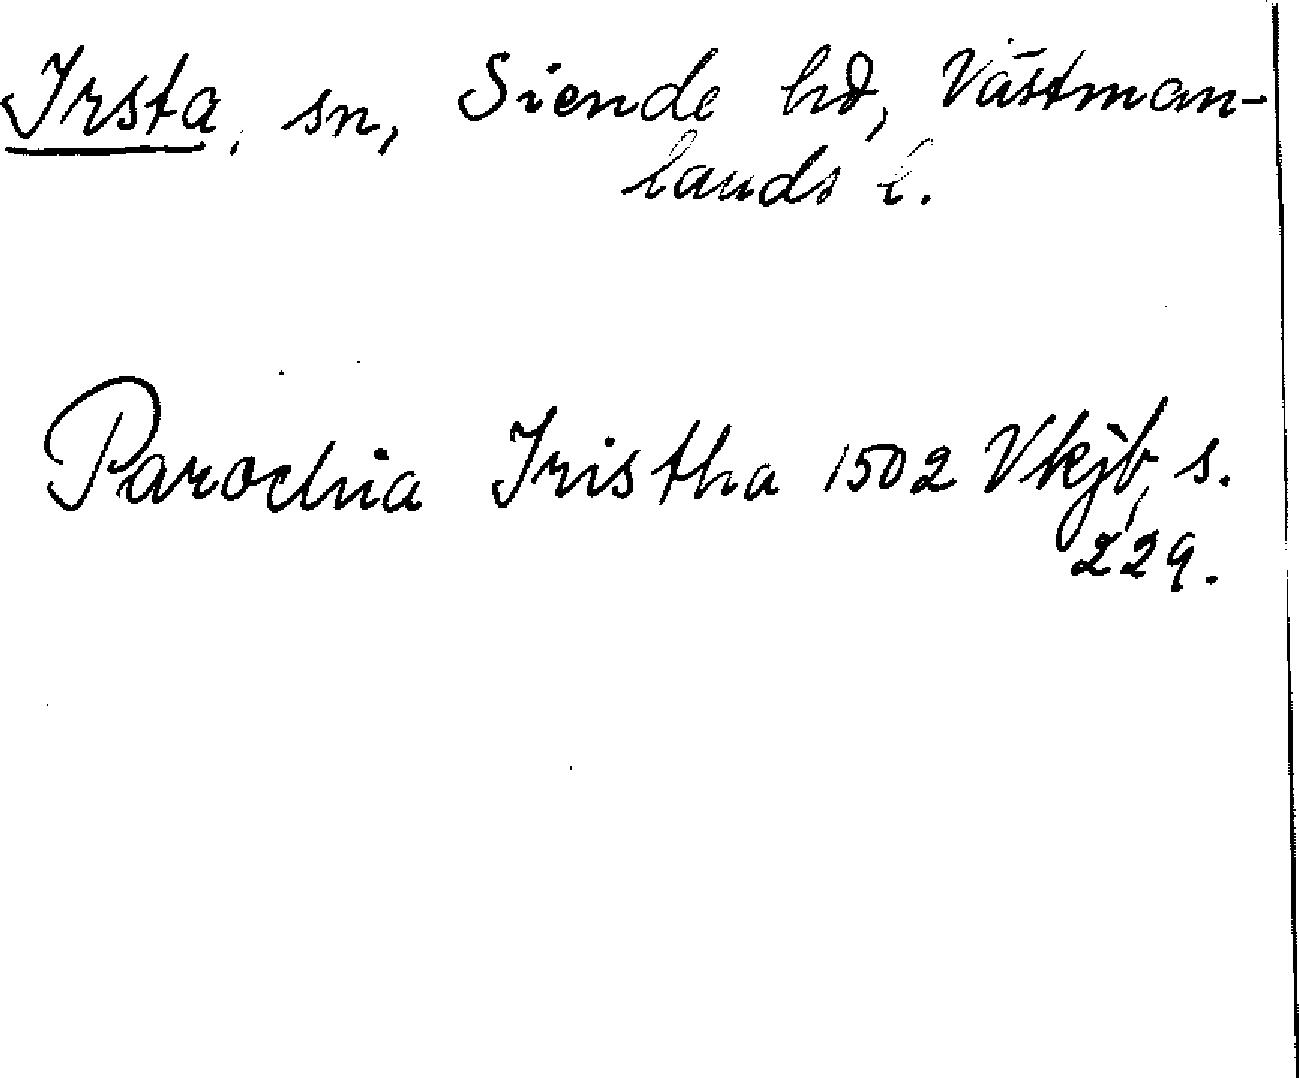 Irsta, sn, Siende hd, Västman-
lands l.
Parochia Iristha 1502 Vkjb, s.
229.